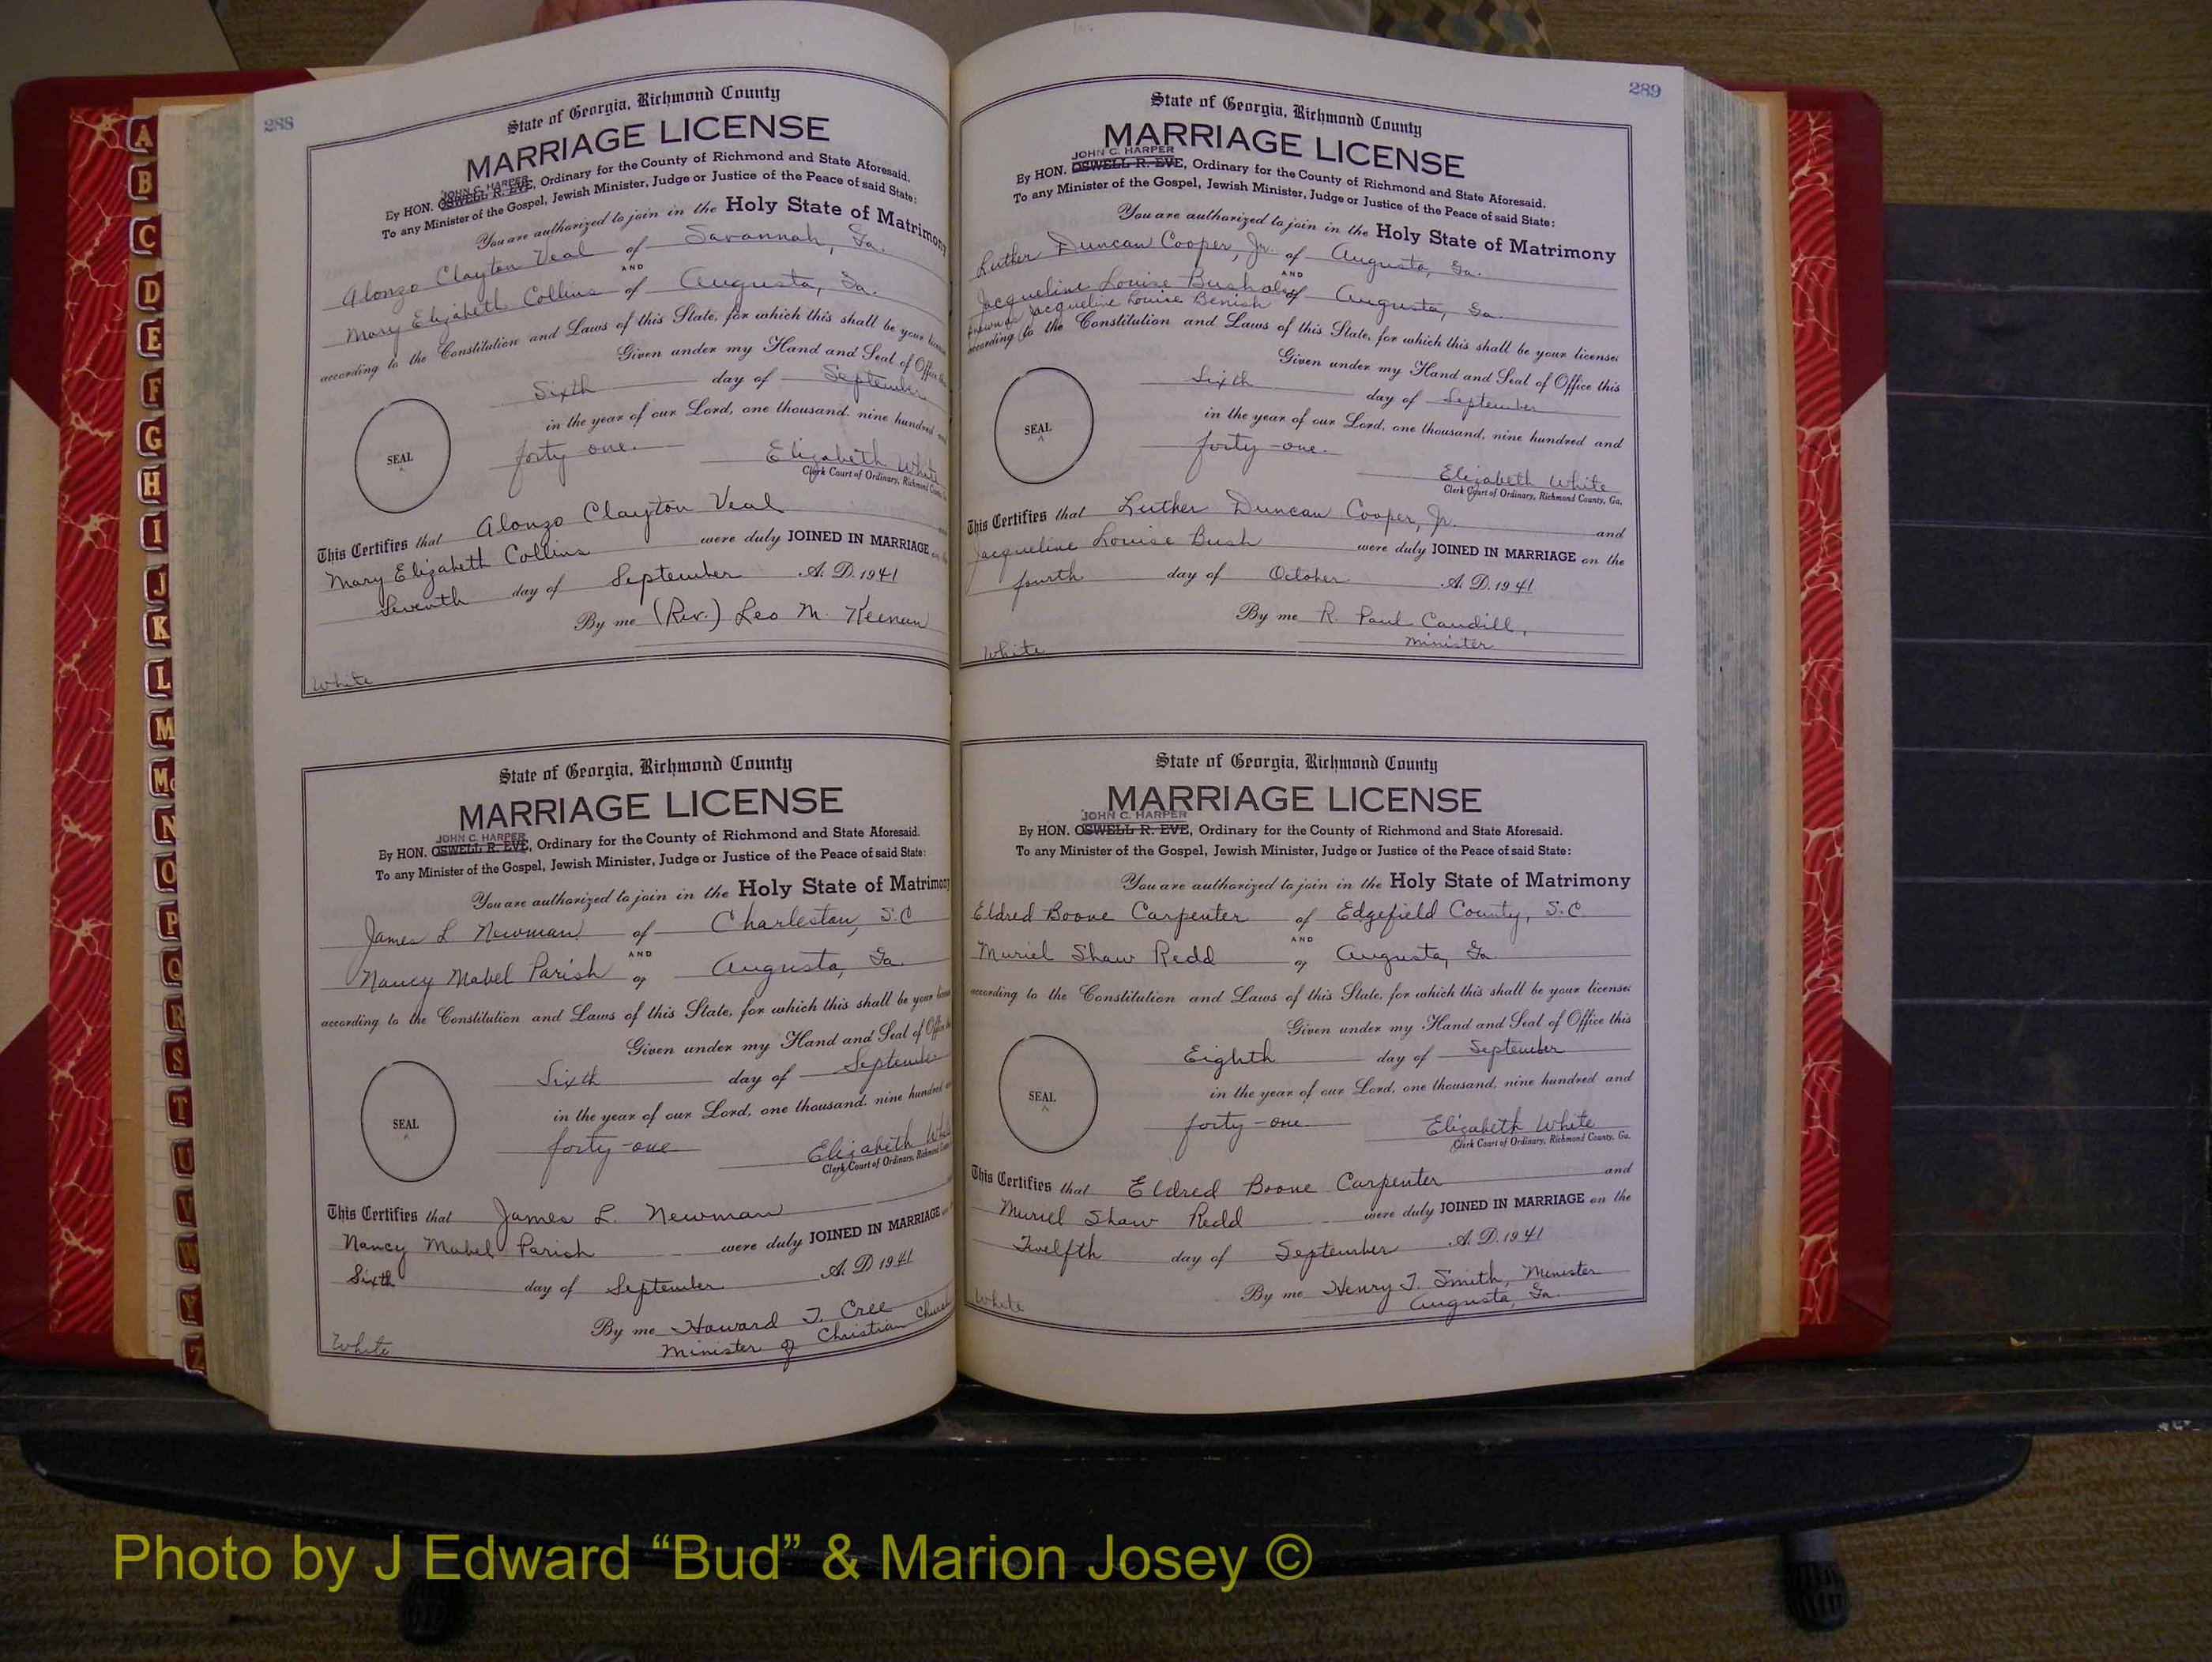 288
State of Georgia, Richmond County
MARRIAGE LICENSE
JOHN C. HARPER
By HON. OSWELL R. EVE, Ordinary for the County of Richmond and State Aforesaid.
To any Minister of the Gospel, Jewish Minister, Judge or Justice of the Peace of said State:
You are authorized to join in the Holy State of Matrimony
Alonzo Clayton Veal of Savannah, Ga.
AND
Mary Elizabeth Collins of Augusta, Ga.
according to the Constitution and Laws of this State, for which this shall be your
Given under my Hand and Seal of Office
Sixth day of September
in the year of our Lord, one thousand, nine hundred
forty one.
SEAL
Elizabeth White
Clerk Court of Ordinary, Richmond
This Certifies that Alonzo Clayton Veal
Mary Elizabeth Collins were duly JOINED IN MARRIAGE
Seventh day of September A. D. 1941
By me (Rev.) Leo M. Keenan
White
State of Georgia, Richmond County
MARRIAGE LICENSE
JOHN C. HARPER
By HON. OSWELL R. EVE, Ordinary for the County of Richmond and State Aforesaid.
To any Minister of the Gospel, Jewish Minister, Judge or Justice of the Peace of said State:
You are authorized to join in the Holy State of Matrimony
James L Newman of Charleston, S.C
AND
Nancy Mabel Parish of Augusta, Ga.
according to the Constitution and Laws of this State, for which this shall be your
Given under my Hand and Seal of Office
Sixth day of September
in the year of our Lord, one thousand, nine hundred
forty-one
SEAL
Elizabeth White
Clerk Court of Ordinary, Richmond
This Certifies that James L. Newman
Nancy Mabel Parish were duly JOINED IN MARRIAGE
Sixth day of September A. D 1941
By me Howard T. Cree
Minister of Christian Church
White
289
State of Georgia, Richmond County
MARRIAGE LICENSE
JOHN C. HARPER
By HON. OSWELL R. EVE, Ordinary for the County of Richmond and State Aforesaid.
To any Minister of the Gospel, Jewish Minister, Judge or Justice of the Peace of said State:
You are authorized to join in the Holy State of Matrimony
Luther Duncan Cooper, Jr. of Augusta, Ga.
AND
Jacqueline Louise Bush also of Augusta, Ga.
known as Jacqueline Louise Benish
according to the Constitution and Laws of this State, for which this shall be your license:
Given under my Hand and Seal of Office this
Sixth day of September
in the year of our Lord, one thousand, nine hundred and
forty-one.
SEAL
Elizabeth White
Clerk Court of Ordinary, Richmond County, Ga.
This Certifies that Luther Duncan Cooper, Jr. and
Jacqueline Louise Bush were duly JOINED IN MARRIAGE on the
fourth day of October A. D. 1941
By me R. Paul Caudill,
minister
White
State of Georgia, Richmond County
MARRIAGE LICENSE
JOHN C. HARPER
By HON. OSWELL R. EVE, Ordinary for the County of Richmond and State Aforesaid.
To any Minister of the Gospel, Jewish Minister, Judge or Justice of the Peace of said State:
You are authorized to join in the Holy State of Matrimony
Eldred Boone Carpenter of Edgefield County, S.C.
AND
Muriel Shaw Redd of Augusta, Ga.
according to the Constitution and Laws of this State, for which this shall be your license:
Given under my Hand and Seal of Office this
Eighth day of September
in the year of our Lord, one thousand, nine hundred and
forty-one
SEAL
Elizabeth White
Clerk Court of Ordinary, Richmond County, Ga.
This Certifies that Eldred Boone Carpenter and
Muriel Shaw Redd were duly JOINED IN MARRIAGE on the
Twelfth day of September A. D. 1941
By me Henry J. Smith, Minister
Augusta, Ga.
White
A
B
C
D
E
F
G
H
I
J
K
L
M
Mc
N
O
P
Q
R
S
T
U
V
W
Y
Z
Photo by J Edward “Bud” & Marion Josey ©